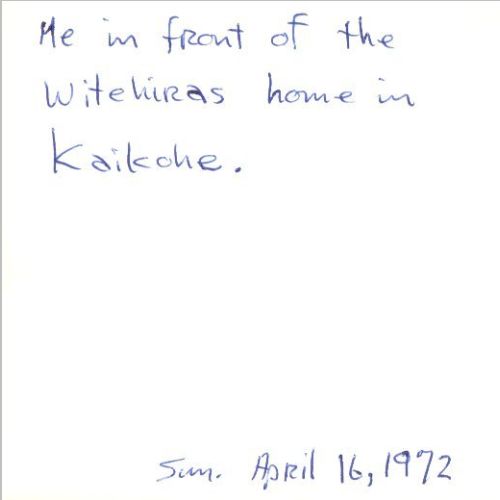 Me in front of the
Witehiras home in
Kaikohe.
Sun. April 16, 1972